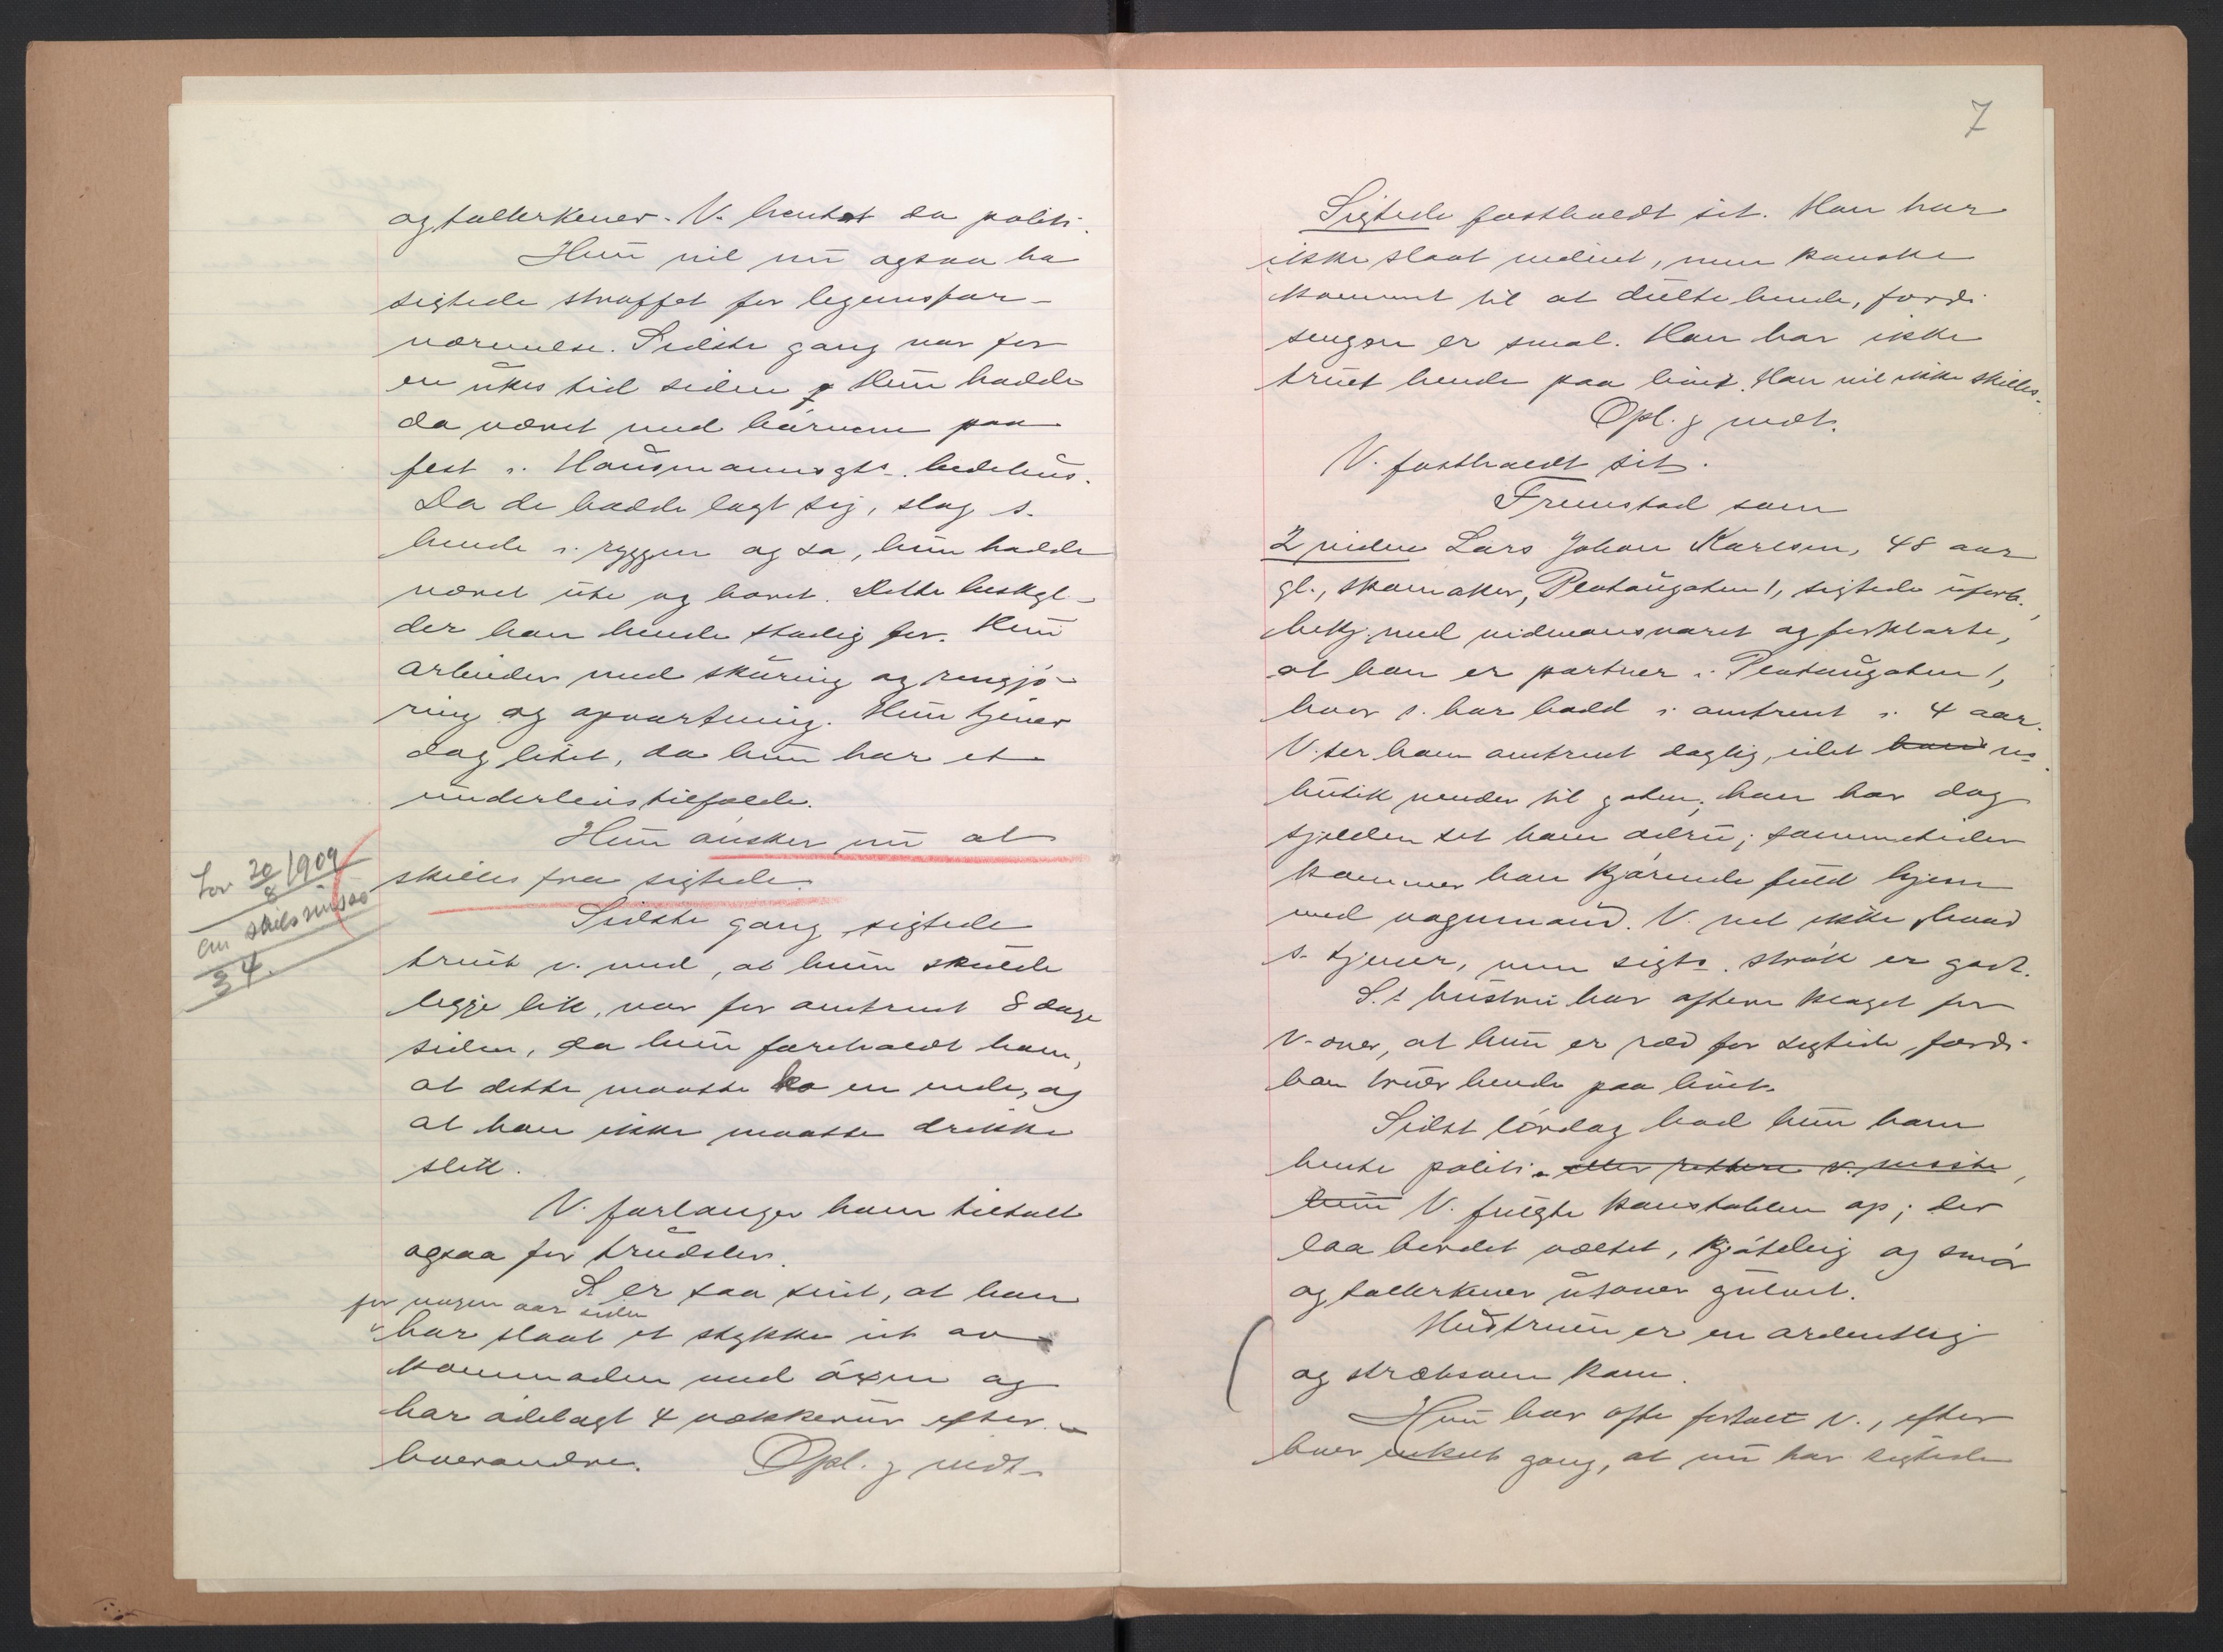 og tallerkener. V. hentet da politi.
Hun vil nu ogsaa ha
sigtede straffet for legemsfor-
nærmelse. Sidste gang var for
en ukes tid siden. Hun hadde
da været med børnene paa
fest i Hausmannsgts. bedehus.
Da de hadde lagt sig, slog s.
hende i ryggen og sa, hun hadde
været ute og horet. Dette beskyl-
der han hende stadig for. Hun
arbeider med skuring og rengjø-
ring og opvartning. Hun tjener
dog litet, da hun har et
underlivstilfælde.
Hun ønsker nu at
skilles fra sigtede.
Lov 20/8 1909
om skilsmisse
34.
Sidste gang sigtede
truet v. med, at hun skulde
ligge lik, var for omtrent 8 dage
siden, da hun foreholdt ham,
at dette maatte ha en ende, og
at han ikke maatte drikke
slik.
V. forlanger ham tiltalt
ogsaa for trudsler.
S er saa sint, at han
for nogen aar siden
har slaat et stykke ut av
kommoden med øxen og
har ødelagt 4 vækkerur efter
hverandre. Opl. g vedt.
7
Sigtede fastholdt sit. Han har
ikke slaat vedint, men kanske
kommet til at dulte hende, fordi
sengen er smal. Han har ikke
truet hende paa livet. Han vil ikke skilles.
Opl. g vedt.
V. fastholdt sit.
Fremstod som
2 vidne Lars Johan Karlsen, 48 aar
gl., skomaker, Plataugaten 1, sigtede uforb.,
bekj. med vidneansvaret og forklarte,
at han er portner i Plataugaten 1,
hvor s. har bodd i omtrent i 4 aar.
V. ser ham omtrent daglig, idet hans v.s
butik vender til gaten; han har dog
sjelden set ham ædru; sommetider
kommer han kjørende fuld hjem
med vognmand. V. vet ikke, hvad
s. tjener, men sigts. strøk er godt.
S.s hustru har oftere klaget for
v. over, at hun er ræd for sigtede, fordi
han truer hende paa livet.
Sidst lørdag bad hun ham
hente politi. eller rettere s. maatte,
hun V. fulgte konstablen op; der
laa bordet væltet, kjøtdeig og smør
og tallerkener utover gulvet.
Hustruen er en ordentlig
og stræbsom kone.
Hun har ofte fortalt v., efter
hver enkelt gang, at nu har sigtede